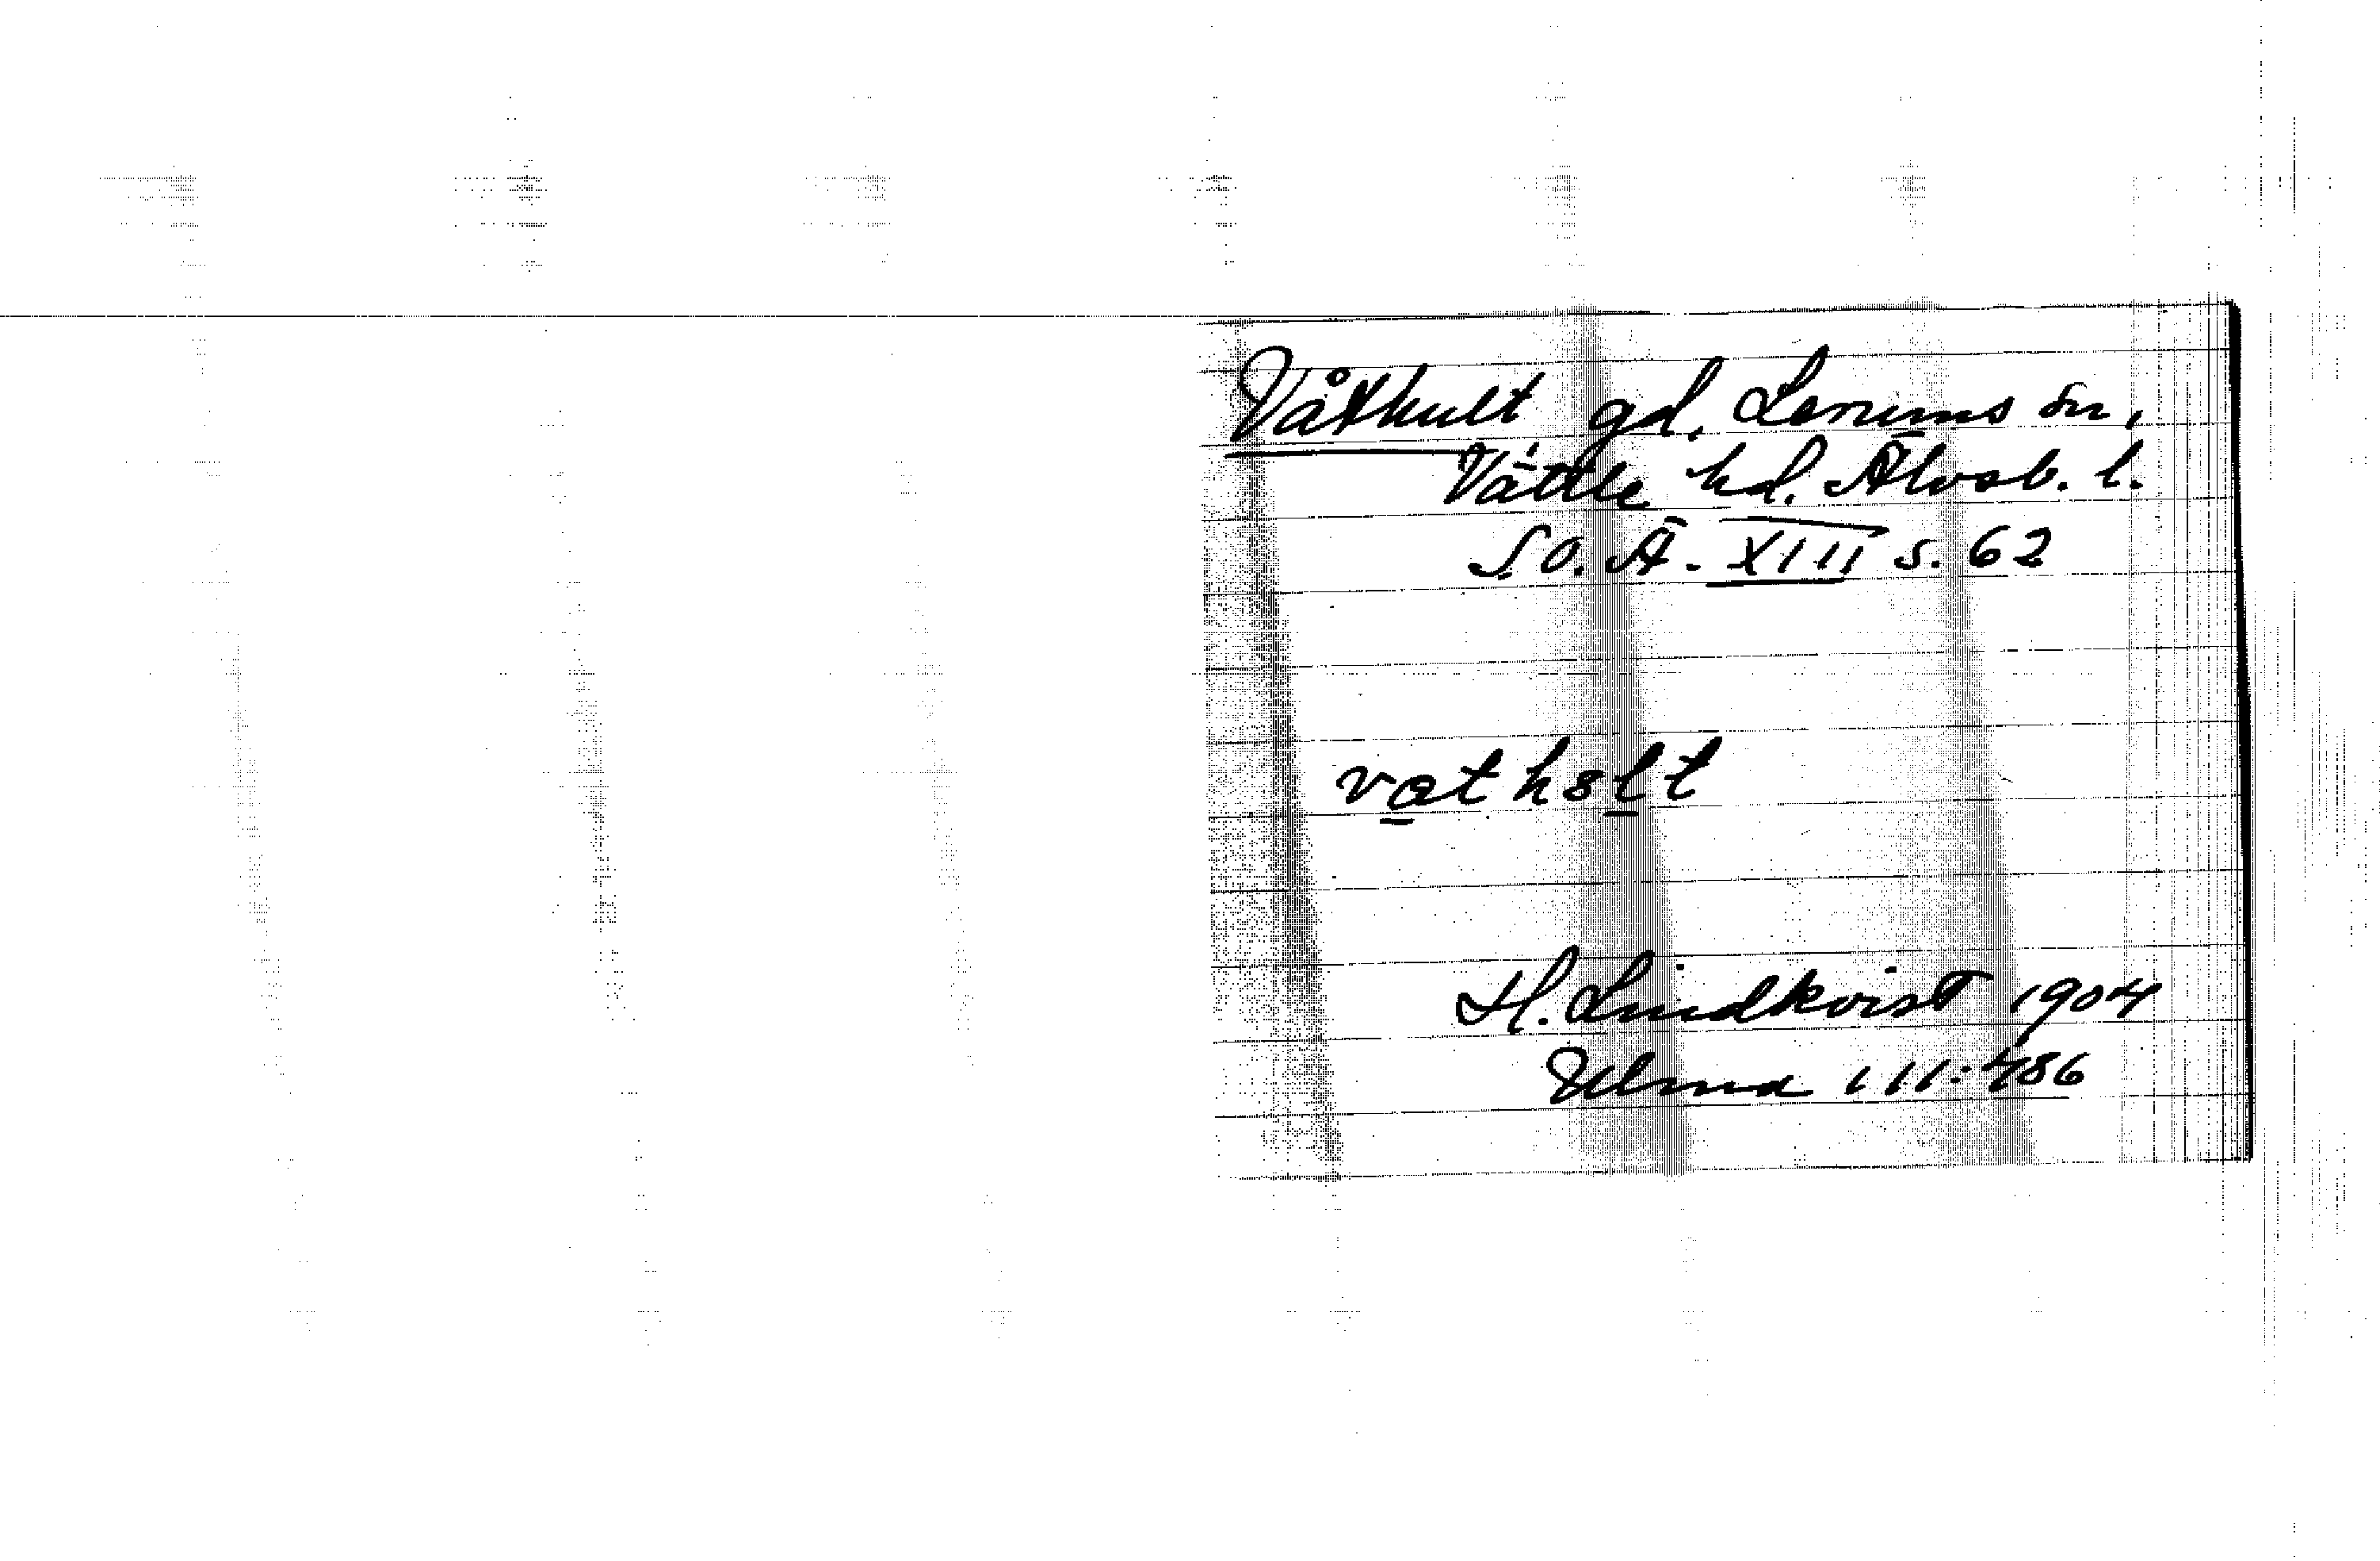 Våthult gd, Lerums sn,
Vättle hd. Älvsb. l.
S.O.Ä. XIII s. 62
vat hslt
H. Lindkvist 1904
Ulma 111:486